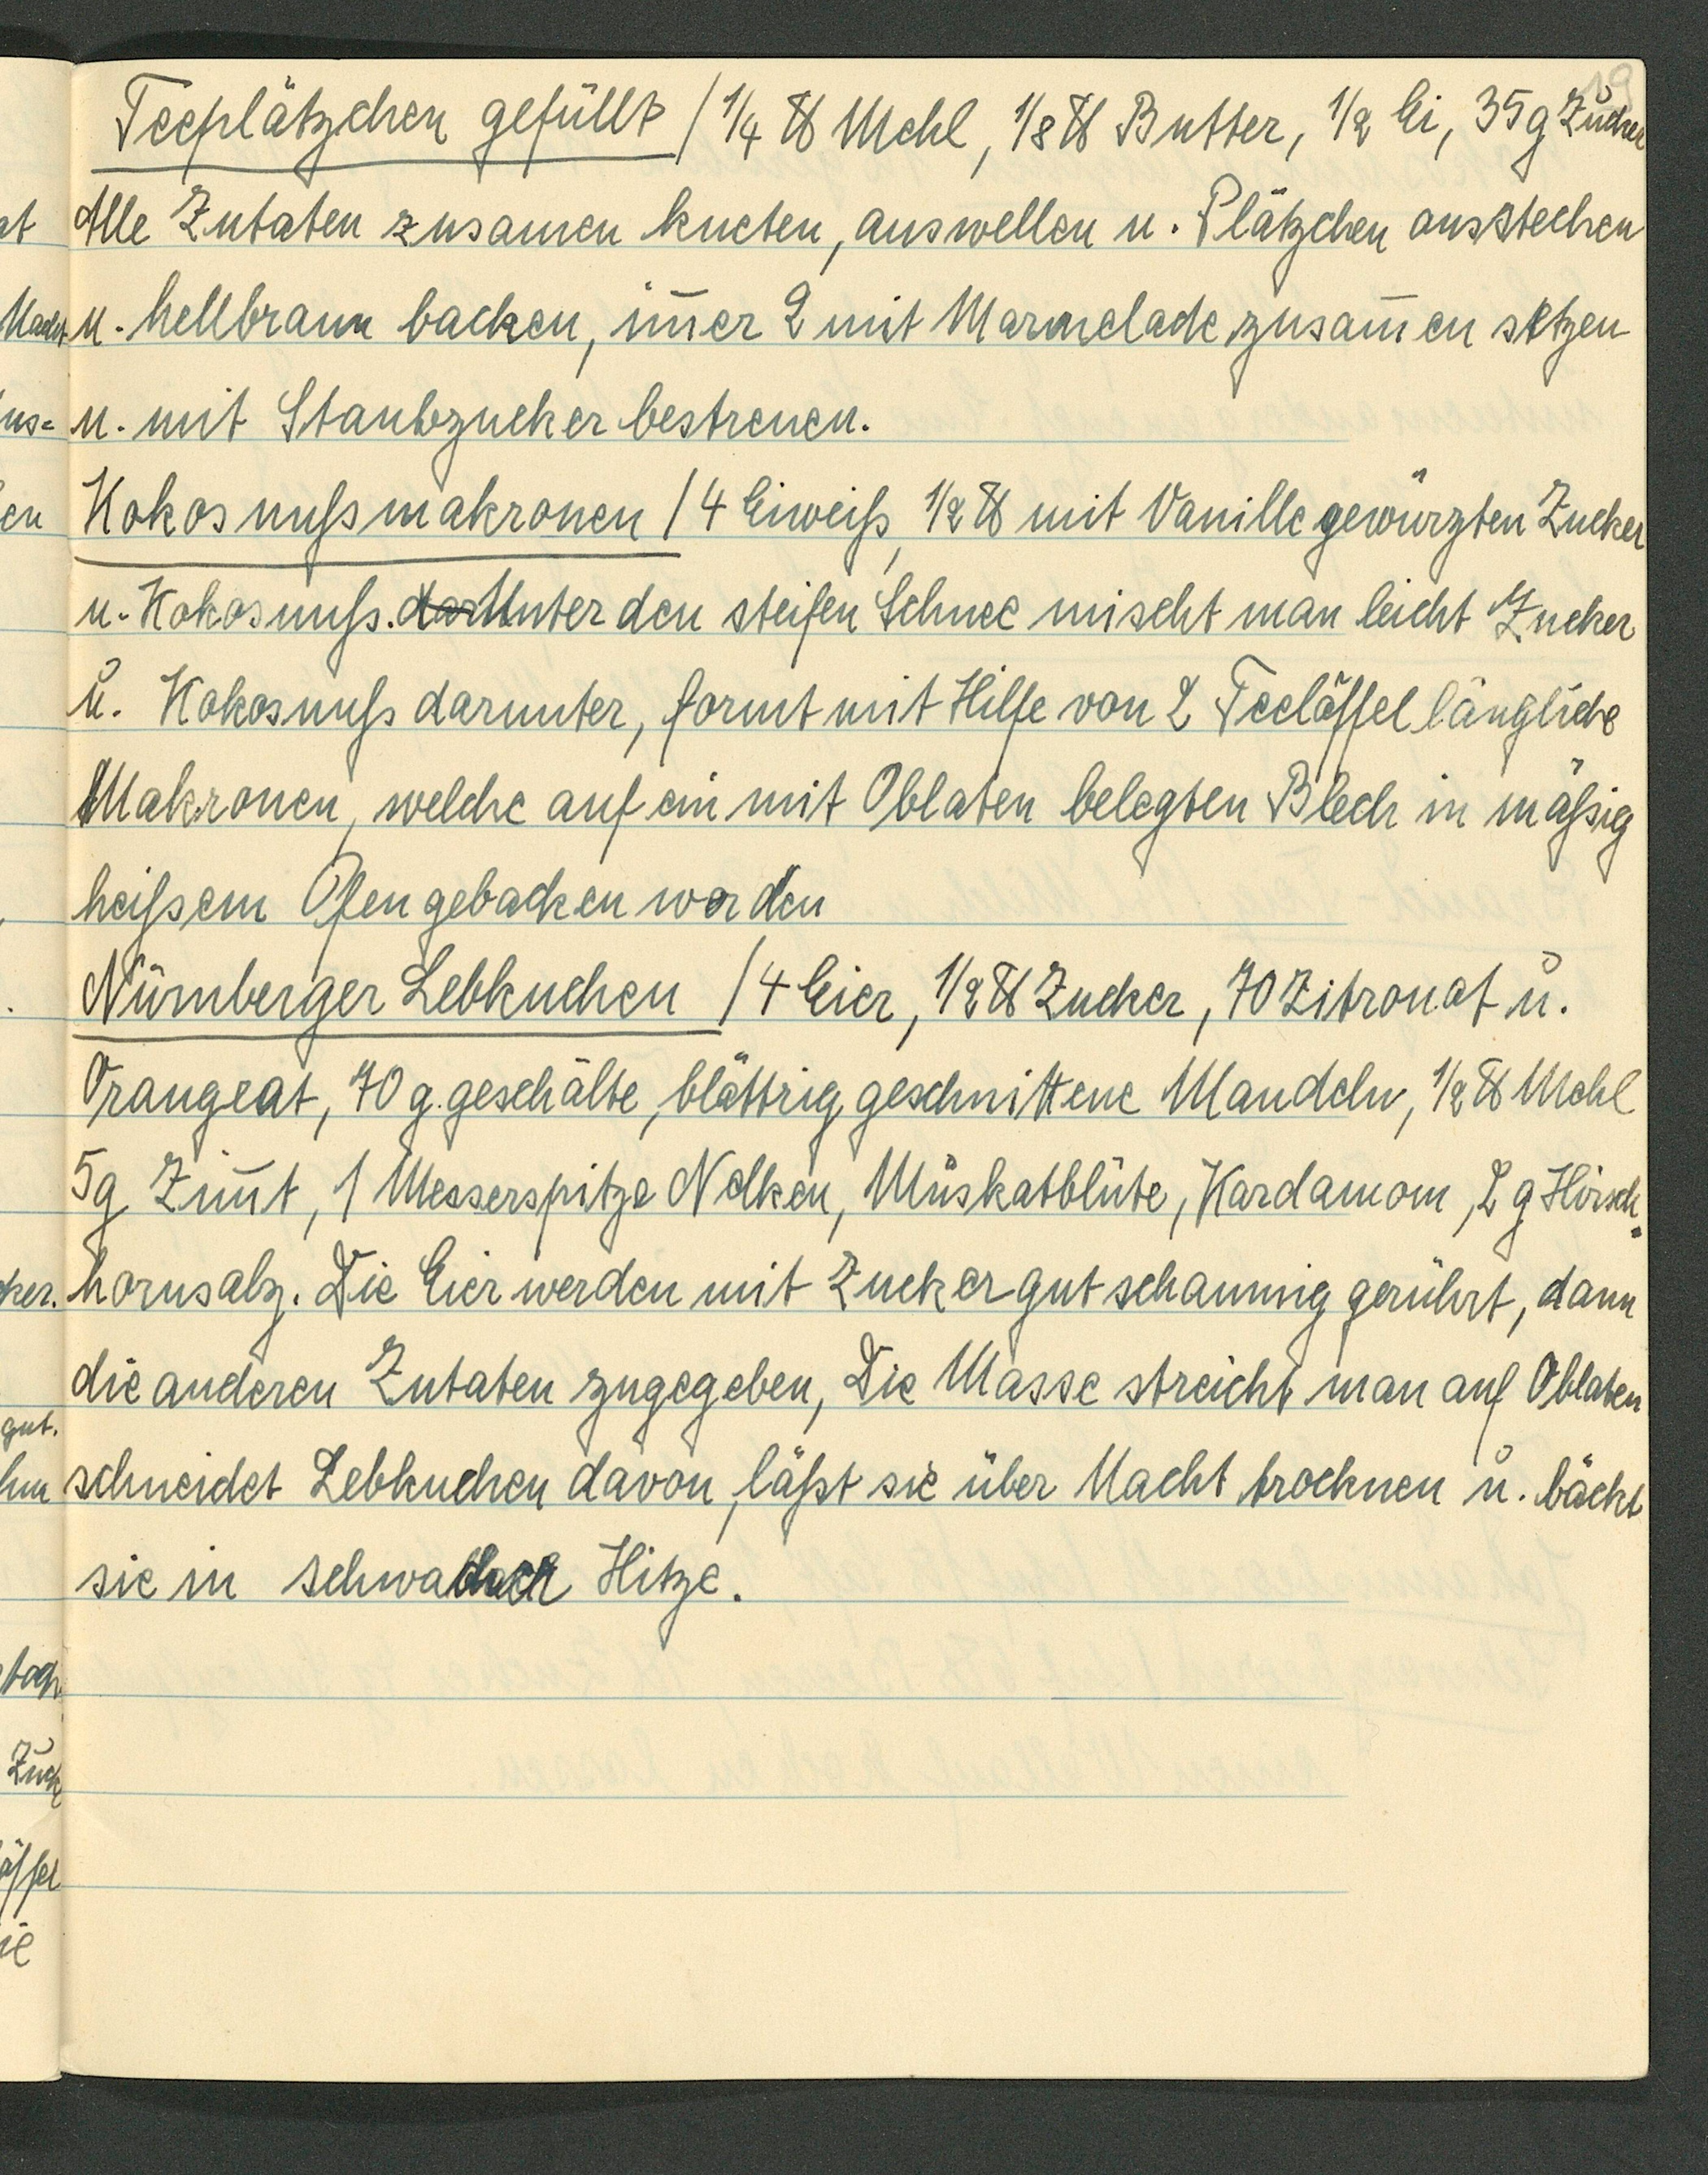 19
Teeplätzchen gefüllt / 1/4 ℔ Mehl, 1/8 ℔ Butter, 1/2 Ei, 35 g Zucker
Alle Zutaten zusamen kneten, auswellen u. Plätzchen ausstechen
u. hellbraun backen, im̅er 2 mit Marmelade zusam̅en setzen
u. mit Staubzucker bestreuen.
Kokosnußmakronen / 4 Eiweiß, 1/2 ℔ mit Vanille gewürzten Zucker
u. Kokosnuß. Unter den steifen Schnee mischt man leicht Zucker
u. Kokosnuß darunter, formt mit Hilfe von 2 Teelöffel längliche
Makronen, welche auf ein mit Oblaten belegten Blech in mäßig
heißem Ofen gebacken werden
Nürnberger Lebkuchen / 4 Eier, 1/2 ℔ Zucker, 70 Zitronat u.
Orangeat, 70 g. geschälte, blättrig geschnittene Mandeln, 1/2 ℔ Mehl
5g Zim̅t, 1 Messerspitze Nelken, Muskatblüte, Kardamom, 2 g Hirsch=
hornsalz. Die Eier werden mit Zucker gut schaumig gerührt, dann
die anderen Zutaten zugegeben, Die Masse streicht man auf Oblaten
schneidet Lebkuchen davon, läßt sie über Nacht trocknen u. bäckt
sie in schwacher Hitze.